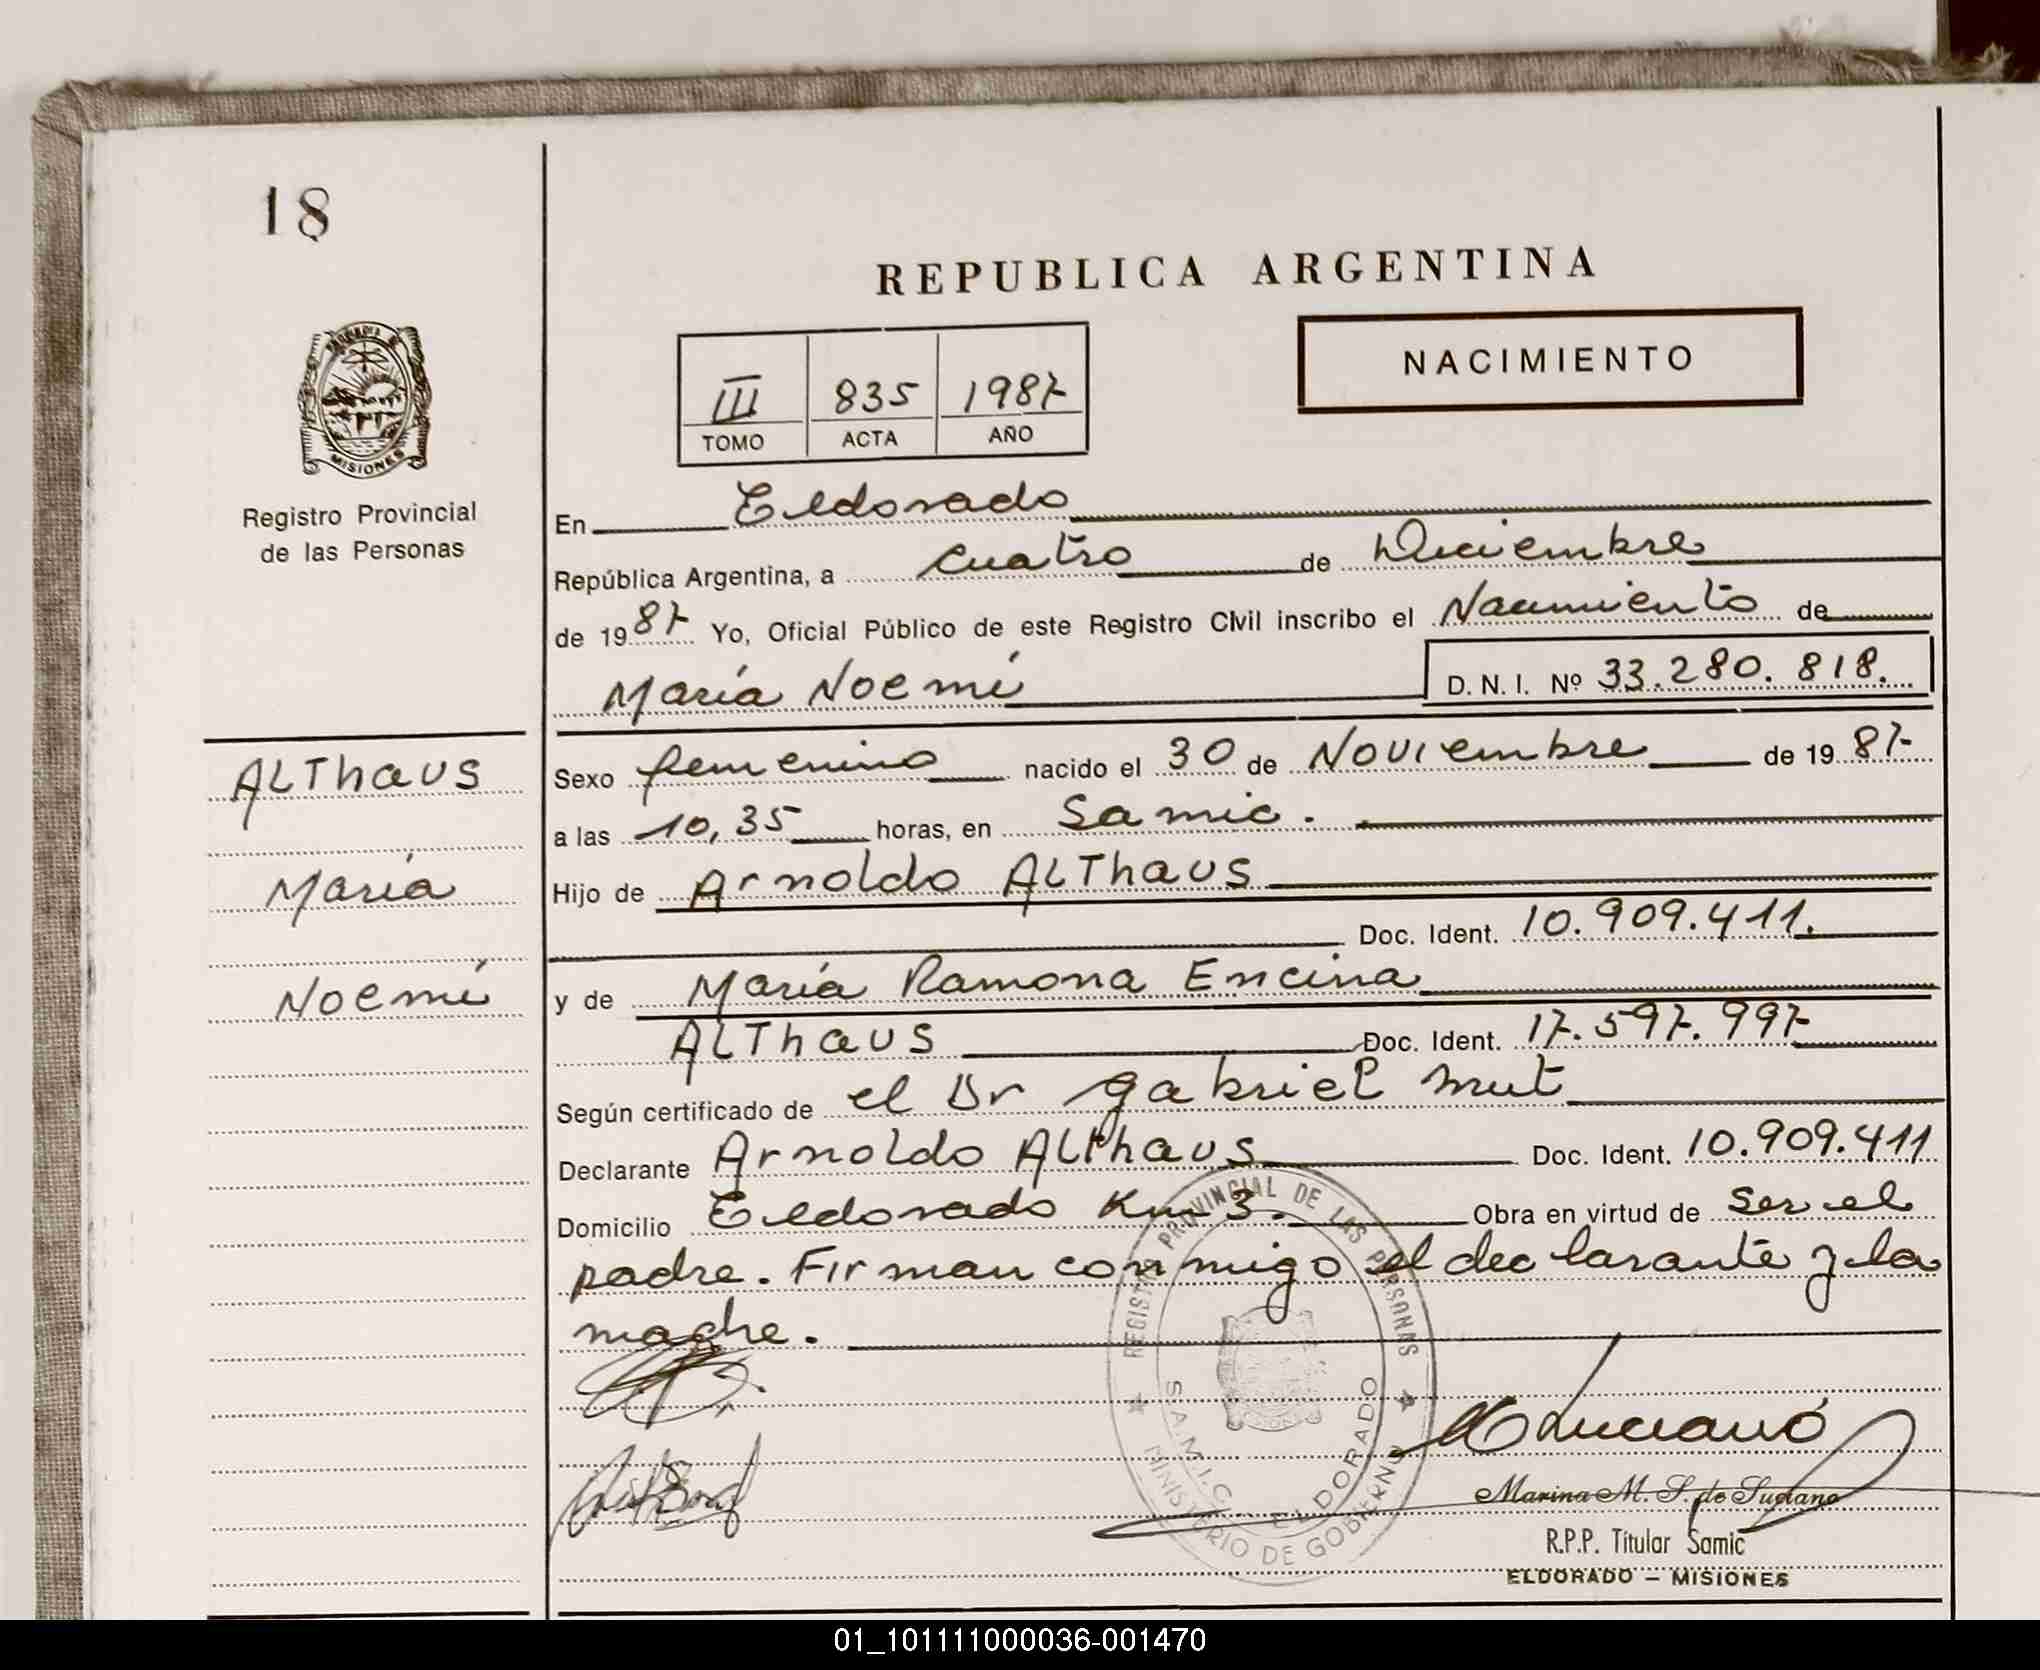 18
REPUBLICA ARGENTINA
NACIMIENTO
III 835 1987
TOMO ACTA AÑO
MISIONES
Registro Provincial
de las Personas
En Eldorado
República Argentina, a cuatro de Diciembre
de 1987 Yo, Oficial Público de este Registro Civil inscribo el Nacimiento de
María Noemí D. N. I. Nº 33.280.818.
ALThaus
María
Noemí
Sexo femenino nacido el 30 de Noviembre de 1987
a las 10,35 horas, en Samic.
Hijo de Arnoldo ALThaus
Doc. Ident. 10.909.411.
y de María Ramona Encina
ALThaus Doc. Ident. 17.597.997
Según certificado de el Dr Gabriel Mut
Declarante Arnoldo Althaus Doc. Ident. 10.909.411
Domicilio Eldorado Km 3. Obra en virtud de ser el
padre. Firman conmigo el declarante y la
madre.
REGISTRO PROVINCIAL DE LAS PERSONAS
S.A.M.I.C. ELDORADO
MINISTERIO DE GOBIERNO
Luciano
Marina M. S. de Luciano
R.P.P. Titular Samic
ELDORADO — MISIONES
01_101111000036-001470